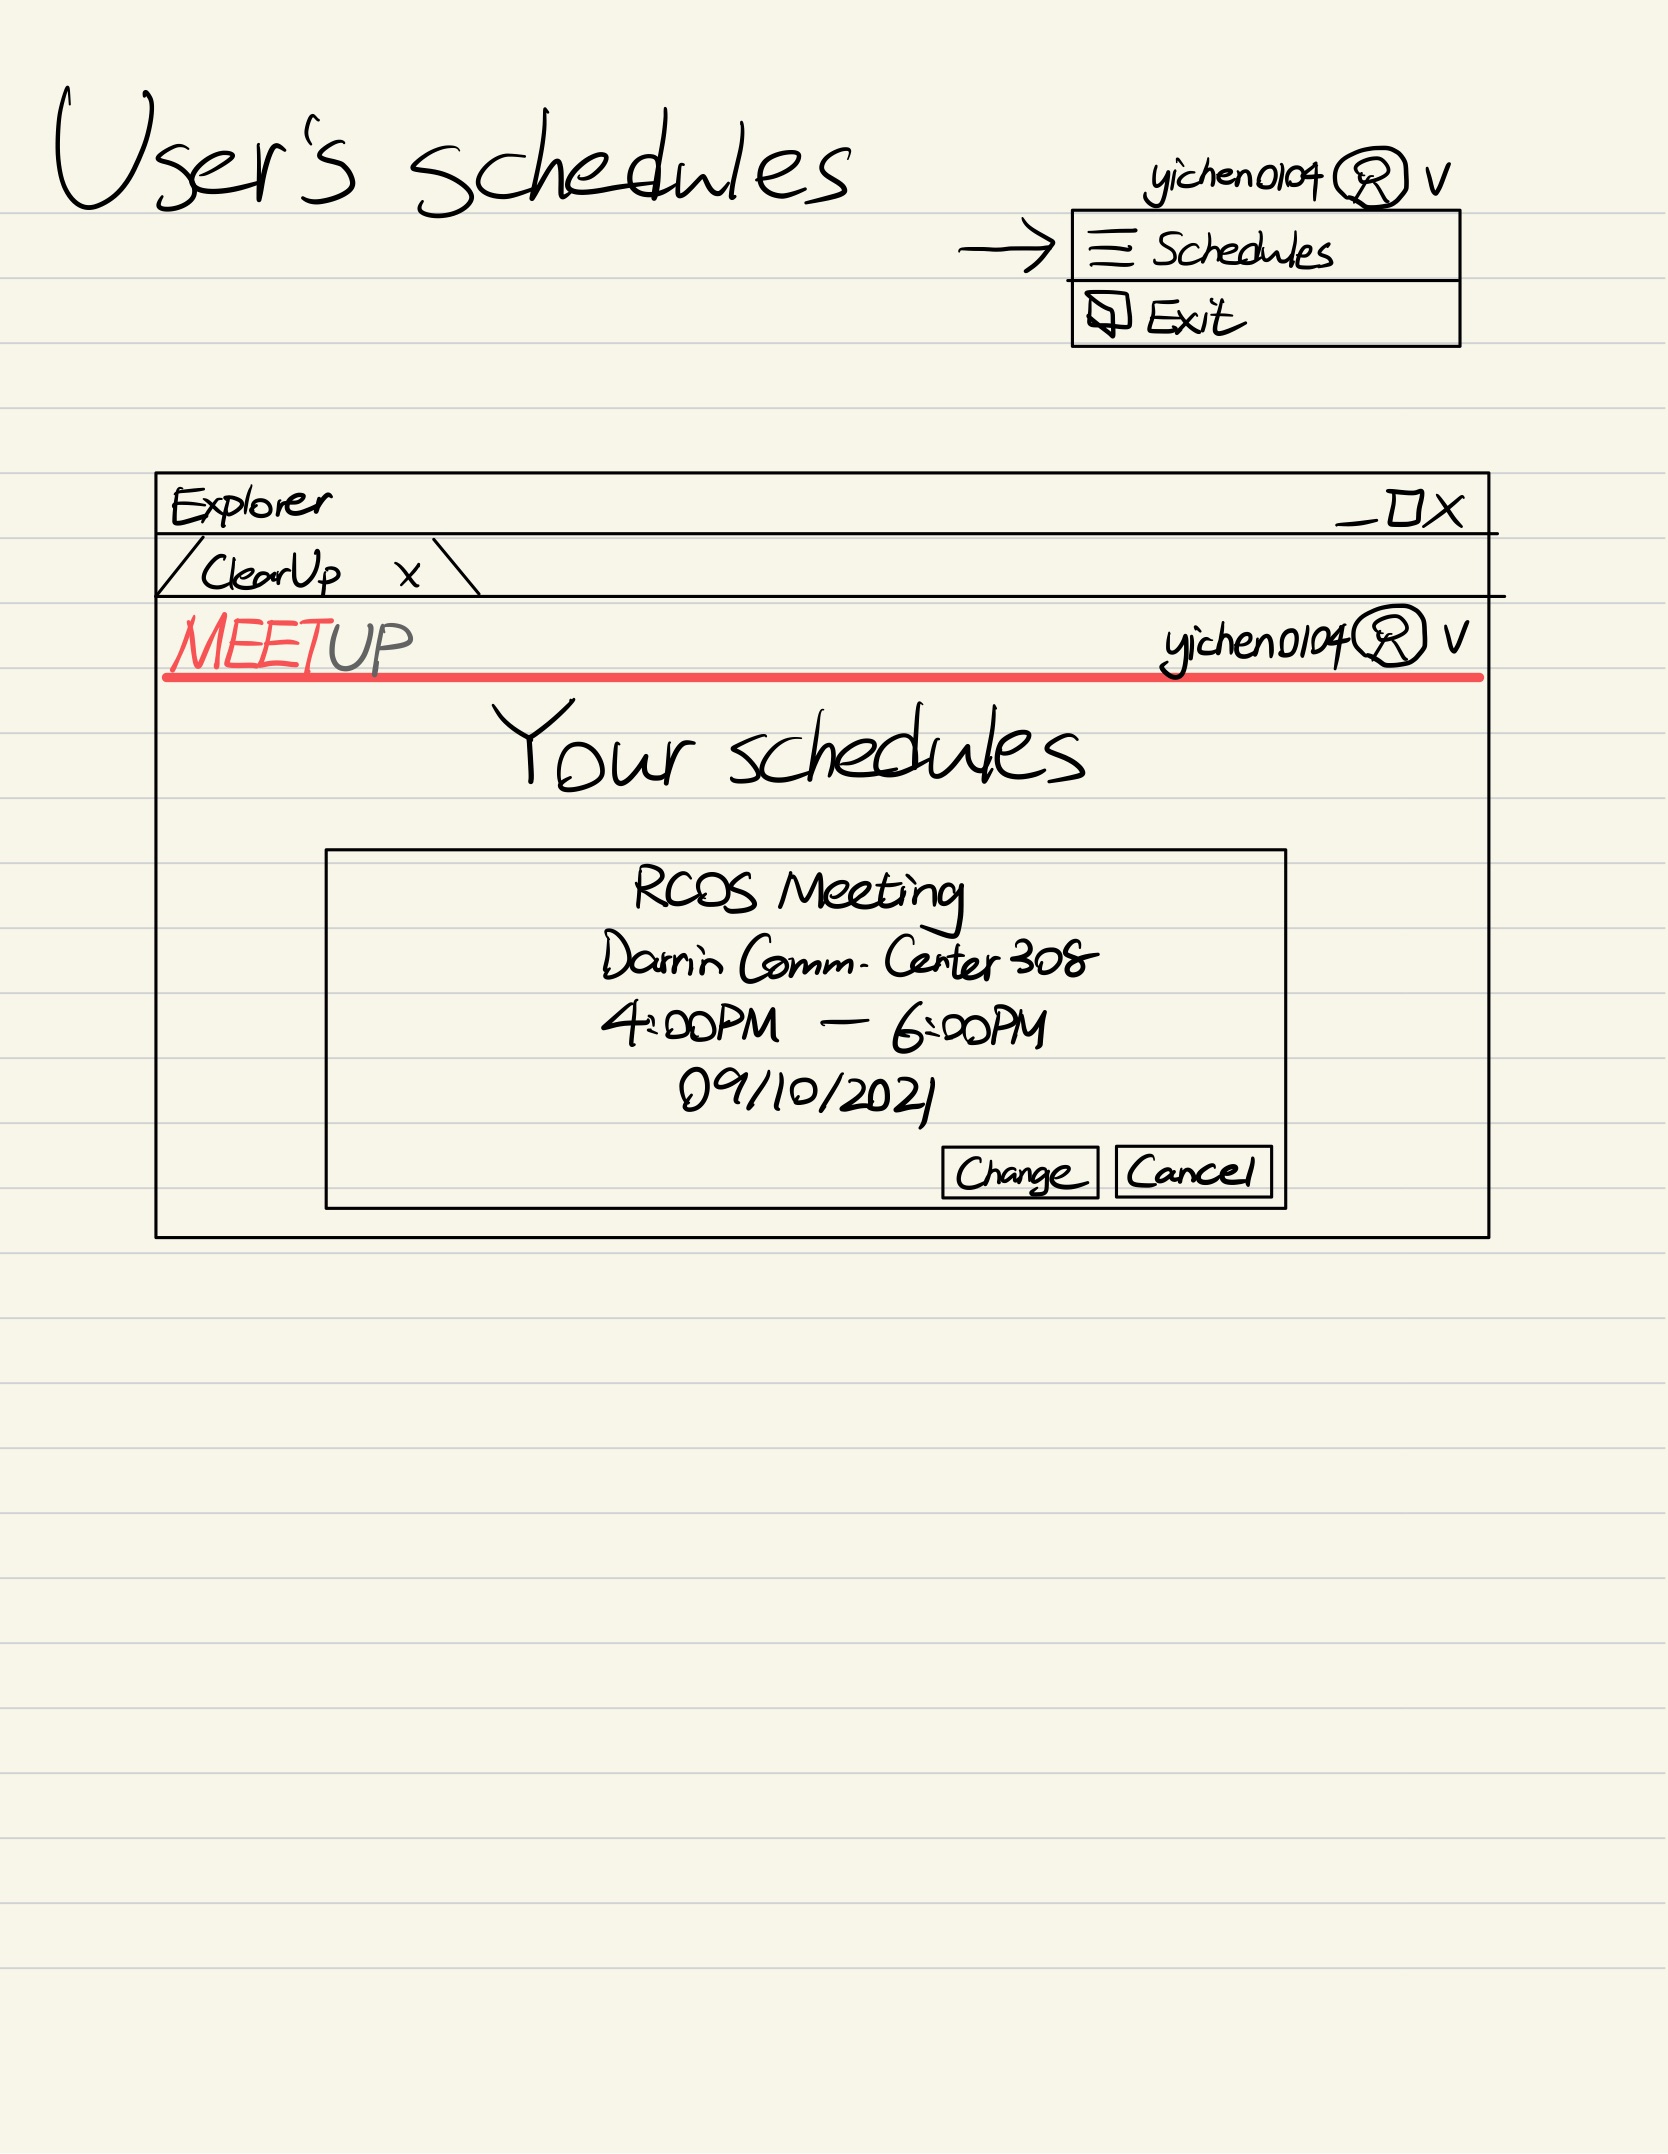 User's schedules
yichen0104 V
Schedules
Exit
Explorer _ □ X
ClearUp x
MEETUP yichen0104 V
Your schedules
RCOS Meeting
Darrin Comm. Center 308
4:00PM — 6:00PM
09/10/2021
Change Cancel